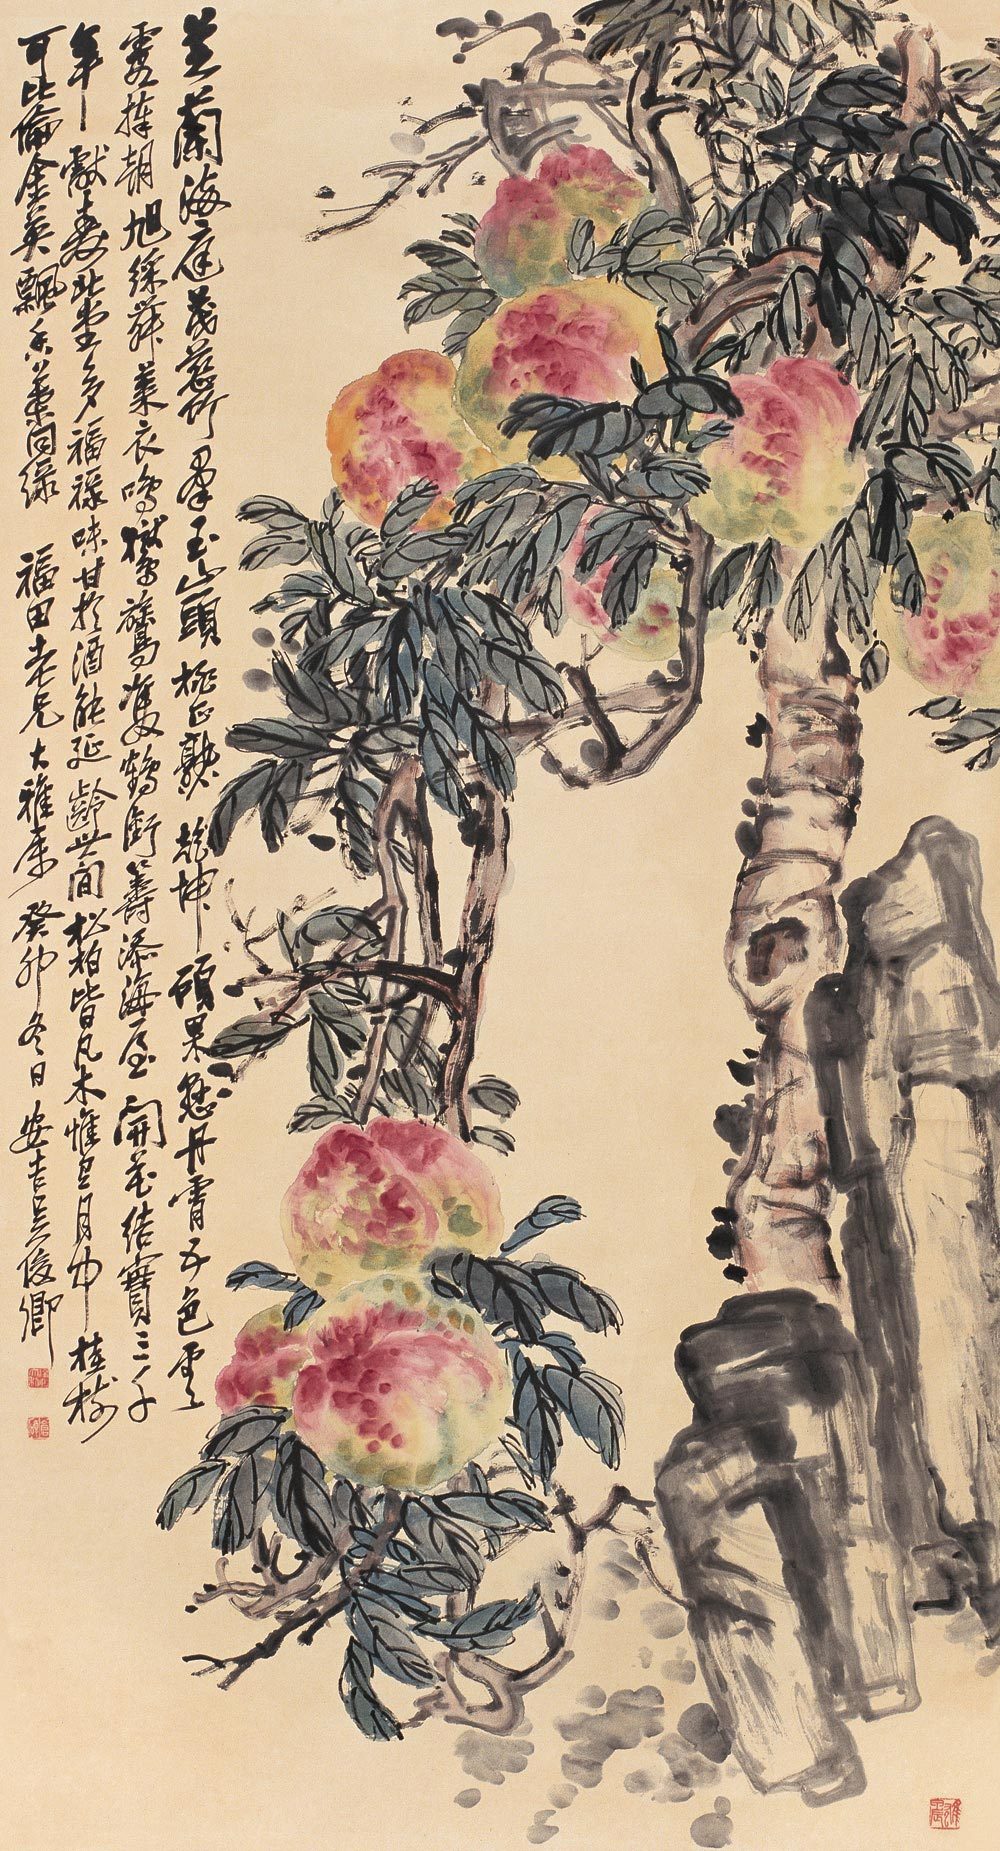 芝蘭海庭茂慈竹羣玉山頭桃正熟乾坤碩果懸丹霄五色雲
霞捧朝旭綵舞萊衣鳴嶽鶯雙鶴銜籌添海屋開花結實三千
年獻壽北堂多福祿味甘於酒能延齡世間松柏皆凡木惟有月中桂樹
可比倫金英飄香葉同綠 福田老兄大雅康 癸卯冬日安吉吳俊卿